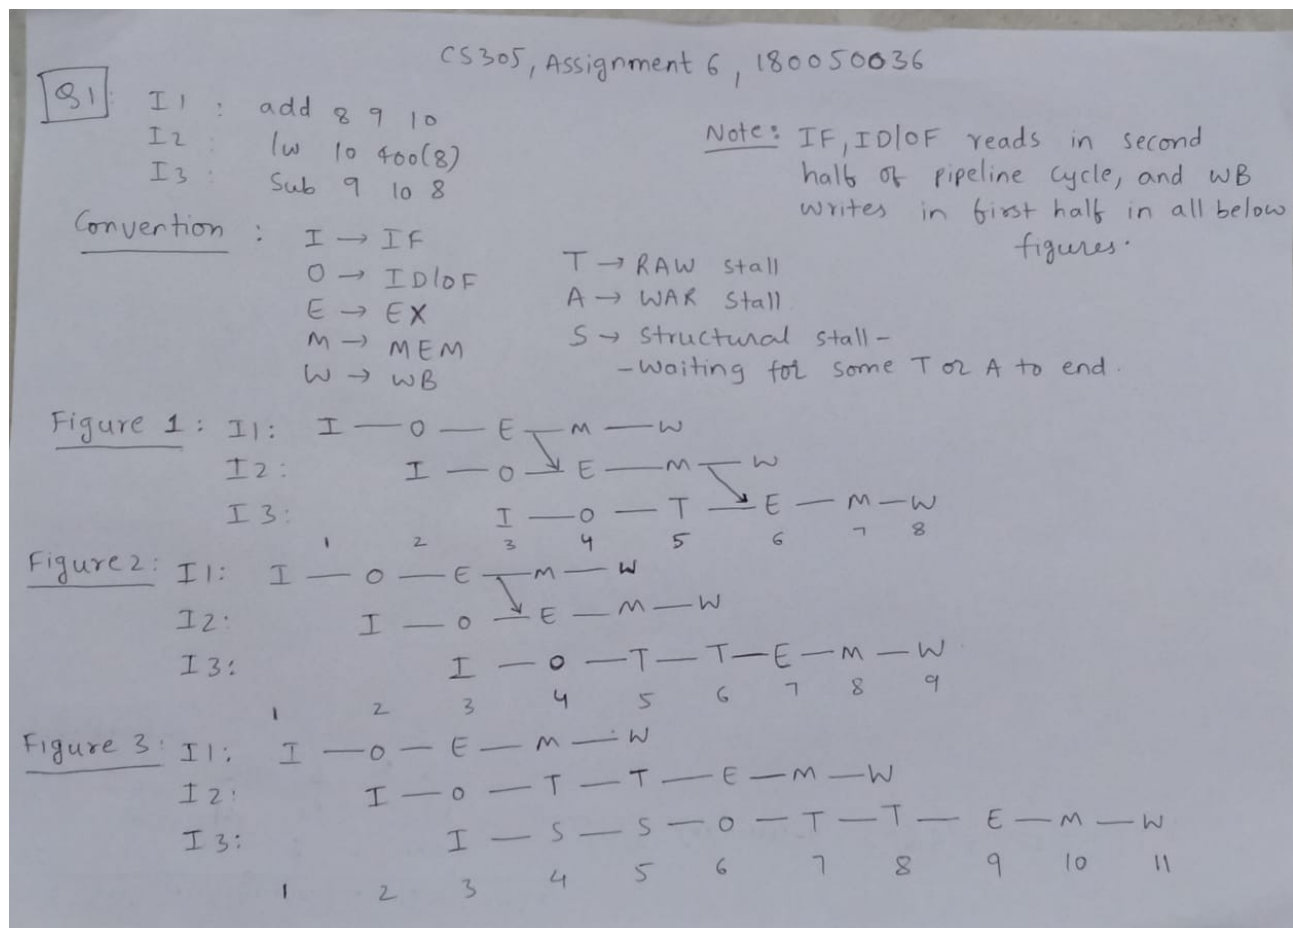 CS305, Assignment 6, 180050036
Q1: I1 : add 8 9 10
I2 : lw 10 400(8)
I3 : Sub 9 10 8
Note: IF, ID/OF reads in second
half of pipeline cycle, and WB
writes in first half in all below
figures.
Convention : I → IF
O → ID/OF
E → EX
M → MEM
W → WB
T → RAW stall
A → WAR stall
S → structural stall -
- waiting for some T or A to end.
Figure 1: I1: I — O — E — M — W
I2: I — O — E — M — W
I3: I — O — T — E — M — W
1 2 3 4 5 6 7 8
Figure 2: I1: I — O — E — M — W
I2: I — O — E — M — W
I3: I — O — T — T — E — M — W
1 2 3 4 5 6 7 8 9
Figure 3: I1: I — O — E — M — W
I2: I — O — T — T — E — M — W
I3: I — S — S — O — T — T — E — M — W
1 2 3 4 5 6 7 8 9 10 11